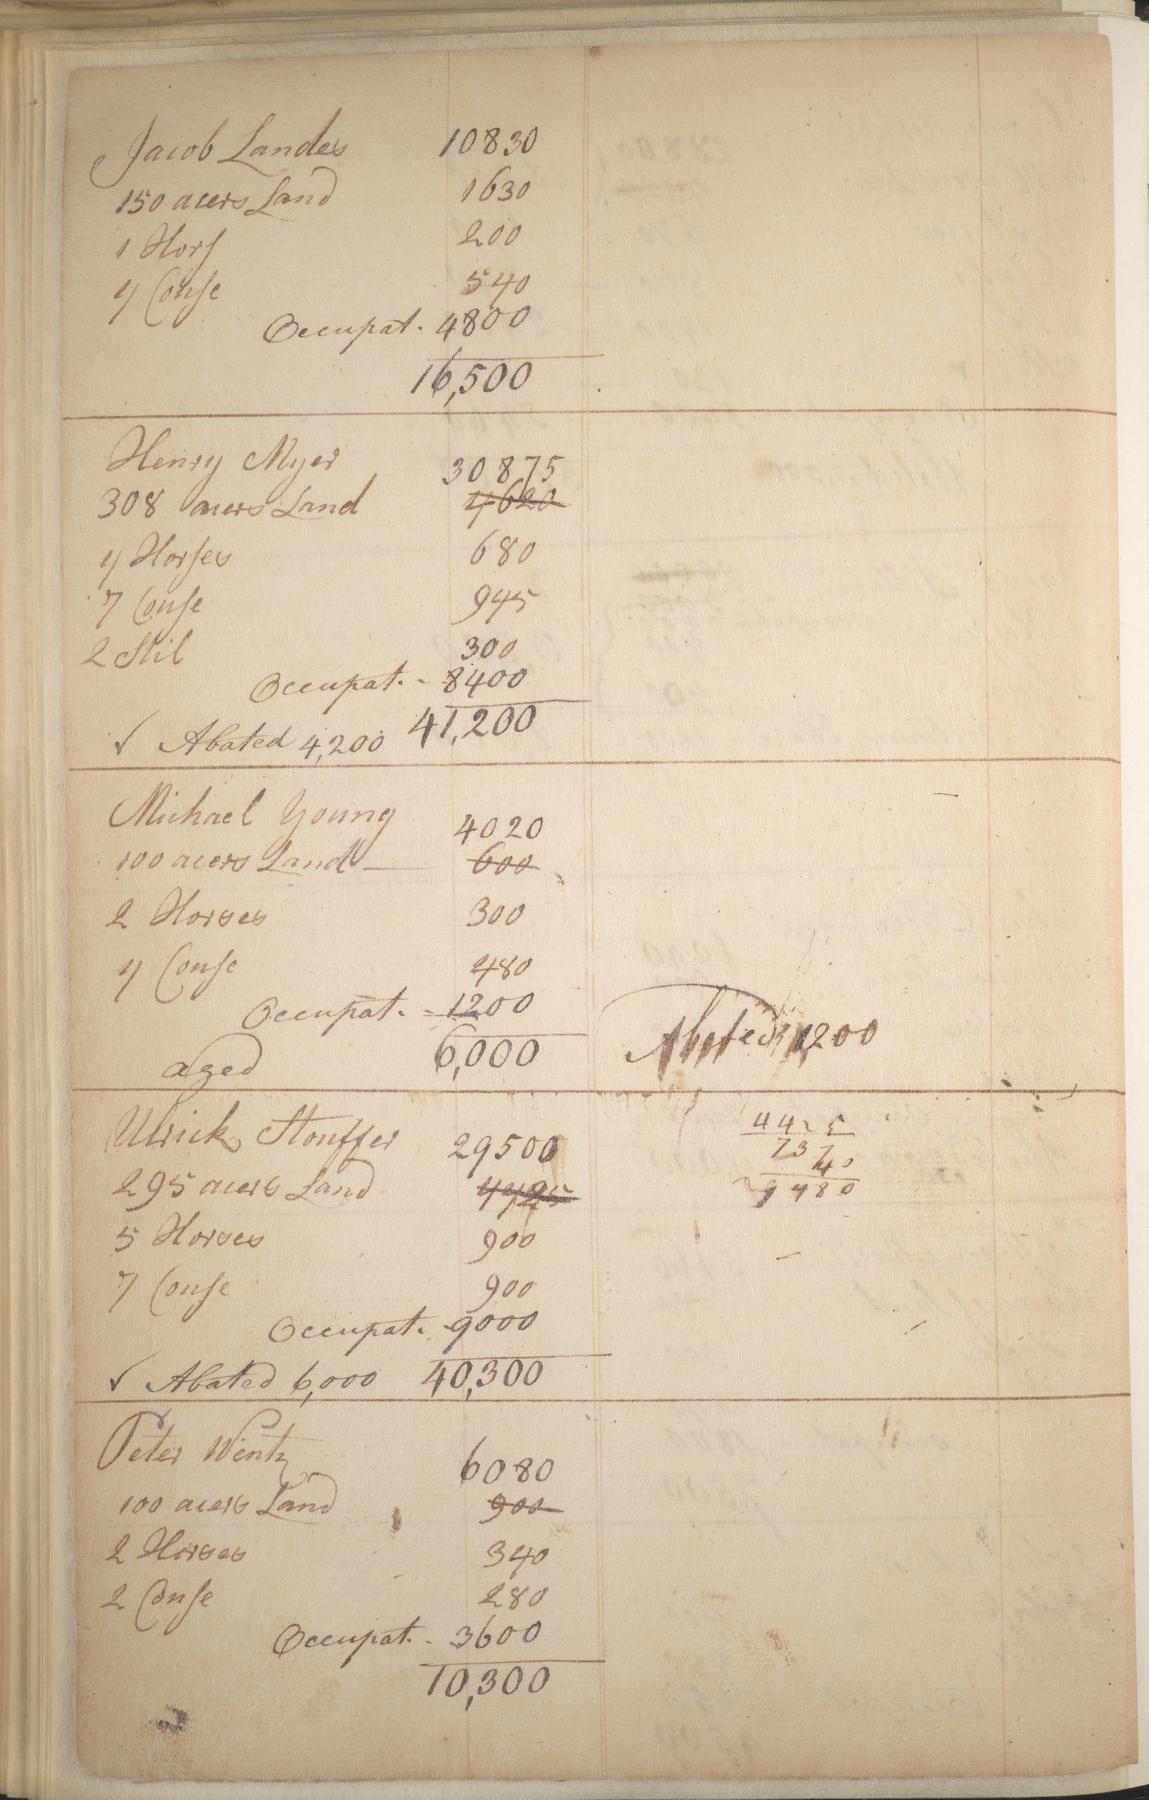 Jacob Landes 10830
150 acers Land 1630
1 Hors 200
4 Couse 540
Occupat. 4800
16,500
Henry Myer 30875
308 acers Land 4620
4 Horses 680
7 Couse 945
2 Stil 300
Occupat. - 8400
✓ Abated 4,200 41,200
Michael Young 4020
100 acers Land 600
2 Horses 300
4 Couse 480
Occupat. - 1200
aged 6,000
Abated 1200
Ulrick Stouffer 29500
295 acers Land 4425
5 Horses 900
7 Couse 900
Occupat. 9000
✓ Abated 6,000 40,300
4425
737
40
Peter Wentz 6080
100 acers Land 900
2 Horses 340
2 Couse 280
Occupat. - 3600
10,300